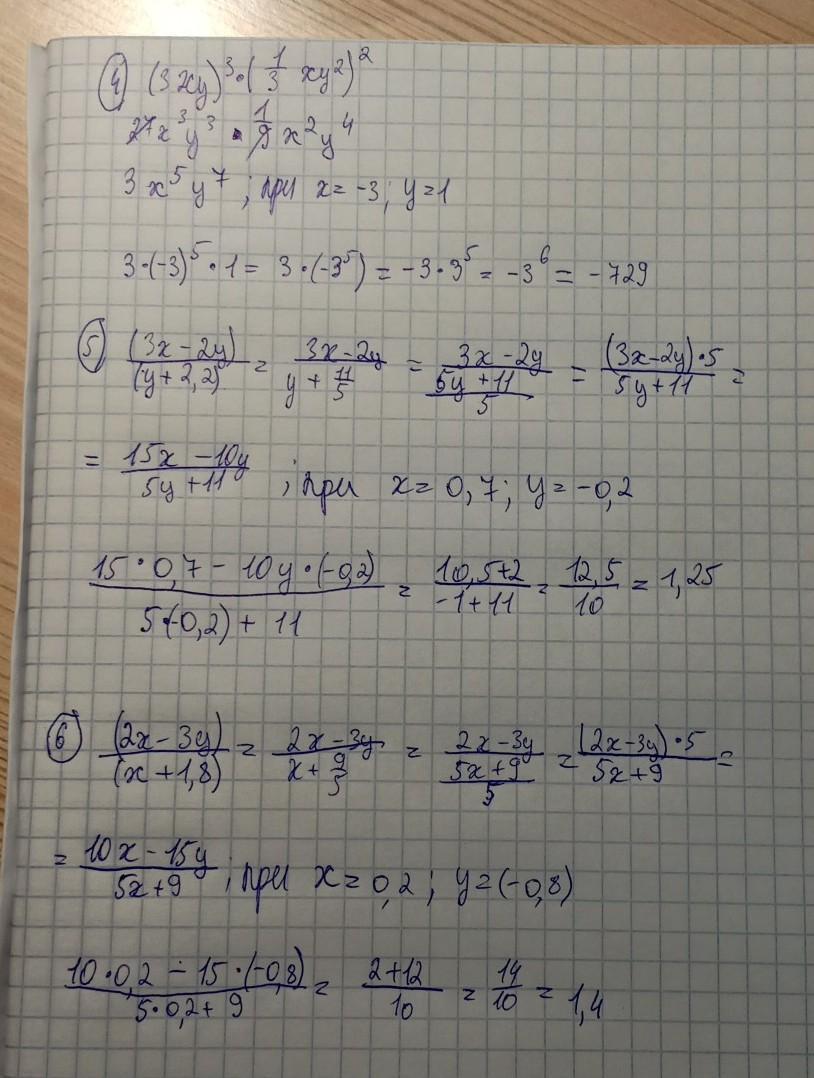 ④ (3xy)³·(1/3 xy²)²
27x³y³ · 1/9 x²y⁴
3x⁵y⁷ ; при x = -3; y = 1
3·(-3)⁵·1 = 3·(-3⁵) = -3·3⁵ = -3⁶ = -729
⑤ (3x-2y)/(y+2,2) = (3x-2y)/(y + 11/5) = (3x-2y)/((5y+11)/5) = ((3x-2y)·5)/(5y+11) =
= (15x-10y)/(5y+11) ; при x = 0,7; y = -0,2
(15·0,7 - 10y·(-0,2))/(5·(-0,2) + 11) = (10,5+2)/(-1+11) = 12,5/10 = 1,25
⑥ (2x-3y)/(x+1,8) = (2x-3y)/(x + 9/5) = (2x-3y)/((5x+9)/5) = ((2x-3y)·5)/(5x+9) =
= (10x-15y)/(5x+9) ; при x = 0,2 ; y = (-0,8)
(10·0,2 - 15·(-0,8))/(5·0,2 + 9) = (2+12)/10 = 14/10 = 1,4